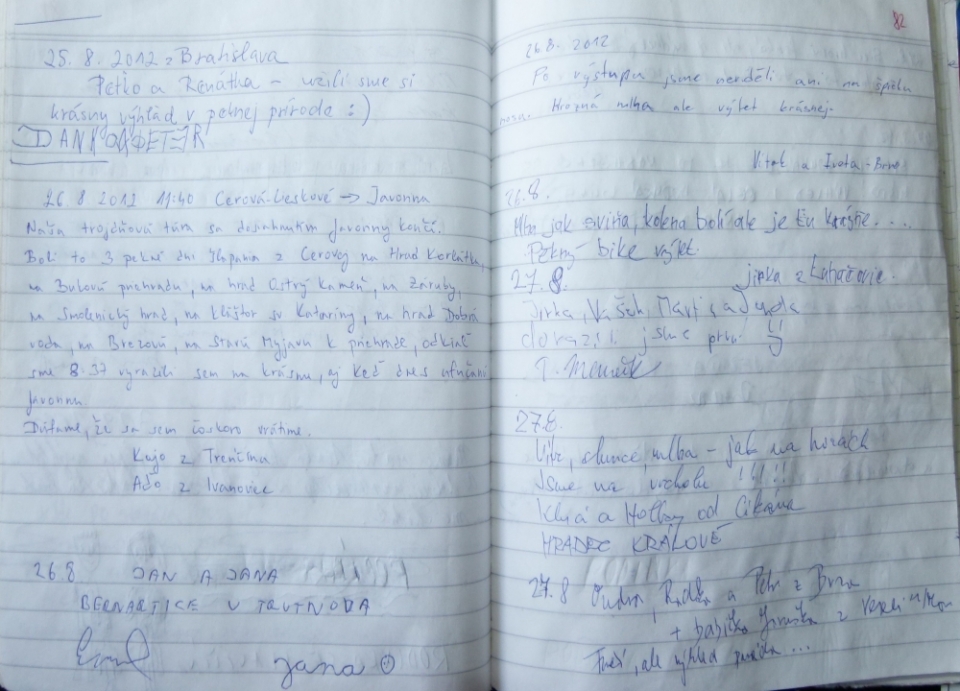 25. 8. 2012 z Bratislava
Peťko a Renátka – užili sme si
krásny výhľad v peknej prírode :)
DANKA PETER
26 8 2012 11:40 Cerová-Lieskové → Javorina
Naša trojdňová túra sa dosiahnutím Javoriny končí.
Boli to 3 pekné dni šľapania z Cerovej na Hrad Korlátka,
na Bukovú priehradu, na hrad Ostrý Kameň, na Záruby,
na Smolenický hrad, na kláštor sv Kataríny, na hrad Dobrá
voda, na Brezovú, na Starú Myjavu k priehrade, odkiaľ
sme 8:37 vyrazili sem na krásnu, aj keď dnes ufučanú
Javorinu
Dúfame, že sa sem čoskoro vrátime.
Kujo z Trenčína
Aďo z Ivanoviec
26.8 JAN A JANA
BERNARTICE U TRUTNOVA
Jana
82
26.8. 2012
Po výstupu jsme neviděli ani na špičku
nosu. Hrozná mlha ale výlet krásnej.
Vítek a Iveta - Brno
26.8.
Mha jak sviňa, kolena bolí ale je tu krásně...
Pěkný bike výlet.
Jirka z Luhačovic.
27.8.
Jirka, Vašek, Marťa a
dorazili jsme první
27.8.
Vítr, slunce mlha – jak na horách
Jsme na vrcholu !!!!!
Kluci a Holky od Cikána
HRADEC KRÁLOVÉ
27.8 Ondra, Radka a Petr z Brna
+ babička Jiruška z
ale výhled paráda...